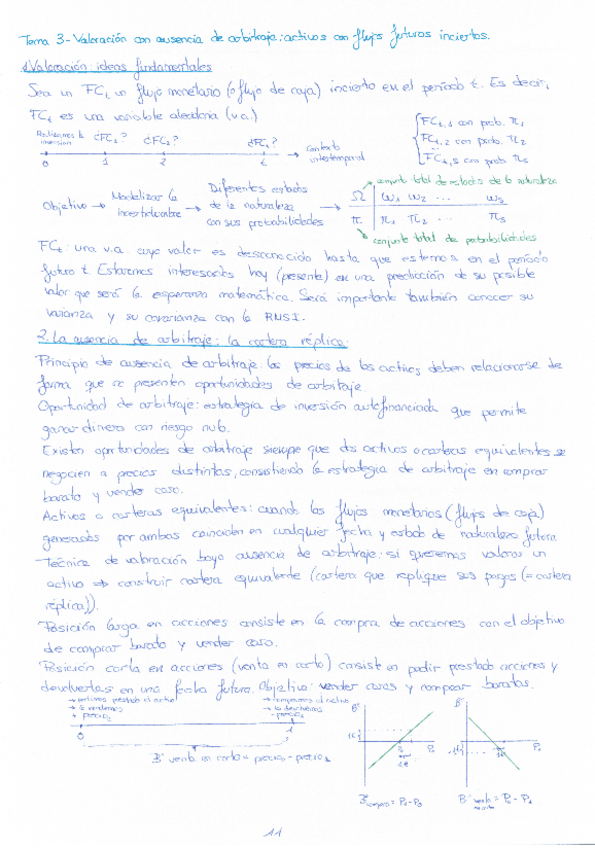 Tema 3 - Valoración con ausencia de arbitraje: activos con flujos futuros inciertos.
1. Valoración: ideas fundamentales
Sea un FCt un flujo monetario (o flujo de caja) incierto en el período t. Es decir,
FCt es una variable aleatoria (v.a.)
FCt,1 con prob. π1
FCt,2 con prob. π2
FCt,S con prob. πS
Realizamos la inversión
¿FC1? ¿FC2? ¿FCt?
0 1 2 t → contexto intertemporal
conjunto total de estados de la naturaleza
Objetivo → Modelizar la incertidumbre → Diferentes estados de la naturaleza con sus probabilidades →
Ω ω1 ω2 ... ωS
π π1 π2 ... πS
conjunto total de probabilidades
FCt: una v.a. cuyo valor es desconocido hasta que estemos en el período
futuro t. Estaremos interesados hoy (presente) en una predicción de su posible
valor que será la esperanza matemática. Será importante también conocer su
varianza y su covarianza con la
2. La ausencia de arbitraje: la cartera réplica.
Principio de ausencia de arbitraje: los precios de los activos deben relacionarse de
forma que no presenten oportunidades de arbitraje.
Oportunidad de arbitraje: estrategia de inversión autofinanciada que permite
ganar dinero con riesgo nulo.
Existen oportunidades de arbitraje siempre que dos activos o carteras equivalentes se
negocien a precios distintos, consistiendo la estrategia de arbitraje en comprar
barato y vender caro.
Activos o carteras equivalentes: cuando los flujos monetarios (flujos de caja)
generados por ambas coinciden en cualquier fecha y estado de naturaleza futura.
Técnica de valoración bajo ausencia de arbitraje: si queremos valorar un
activo → construir cartera equivalente (cartera que replique sus pagos (= cartera
réplica)).
Posición larga en acciones consiste en la compra de acciones con el objetivo
de comprar barato y vender caro.
Posición corta en acciones (venta en corto) consiste en pedir prestado acciones y
devolverlas en una fecha futura. Objetivo: vender caras y comprar baratas.
→ pedimos prestado el activo
→ lo vendemos
+ precio0
→ compramos el activo
→ lo devolvemos
- precio1
0 1
Bº venta en corto = precio0 - precio1
Bº
1€
Bº
1€
Bº compra = P1 - P0
Bº venta = P0 - P1
11